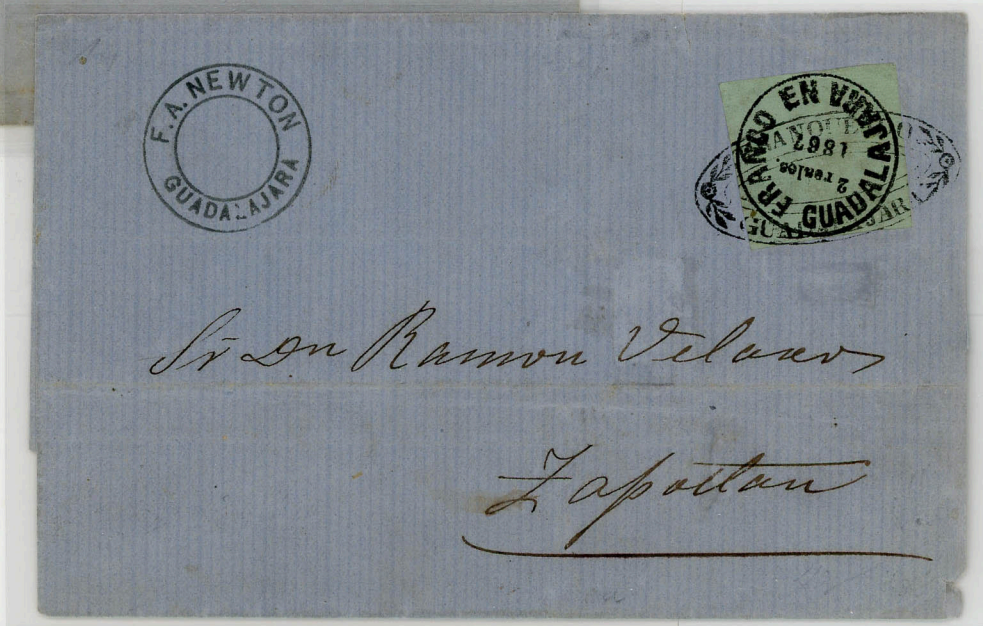 F. A. NEWTON
GUADALAJARA
FRANCO EN GUADALAJARA
2 reales.
1867
FRANQUEADO
GUADALAJARA
Sr Dn Ramon Velasco
Zapottan